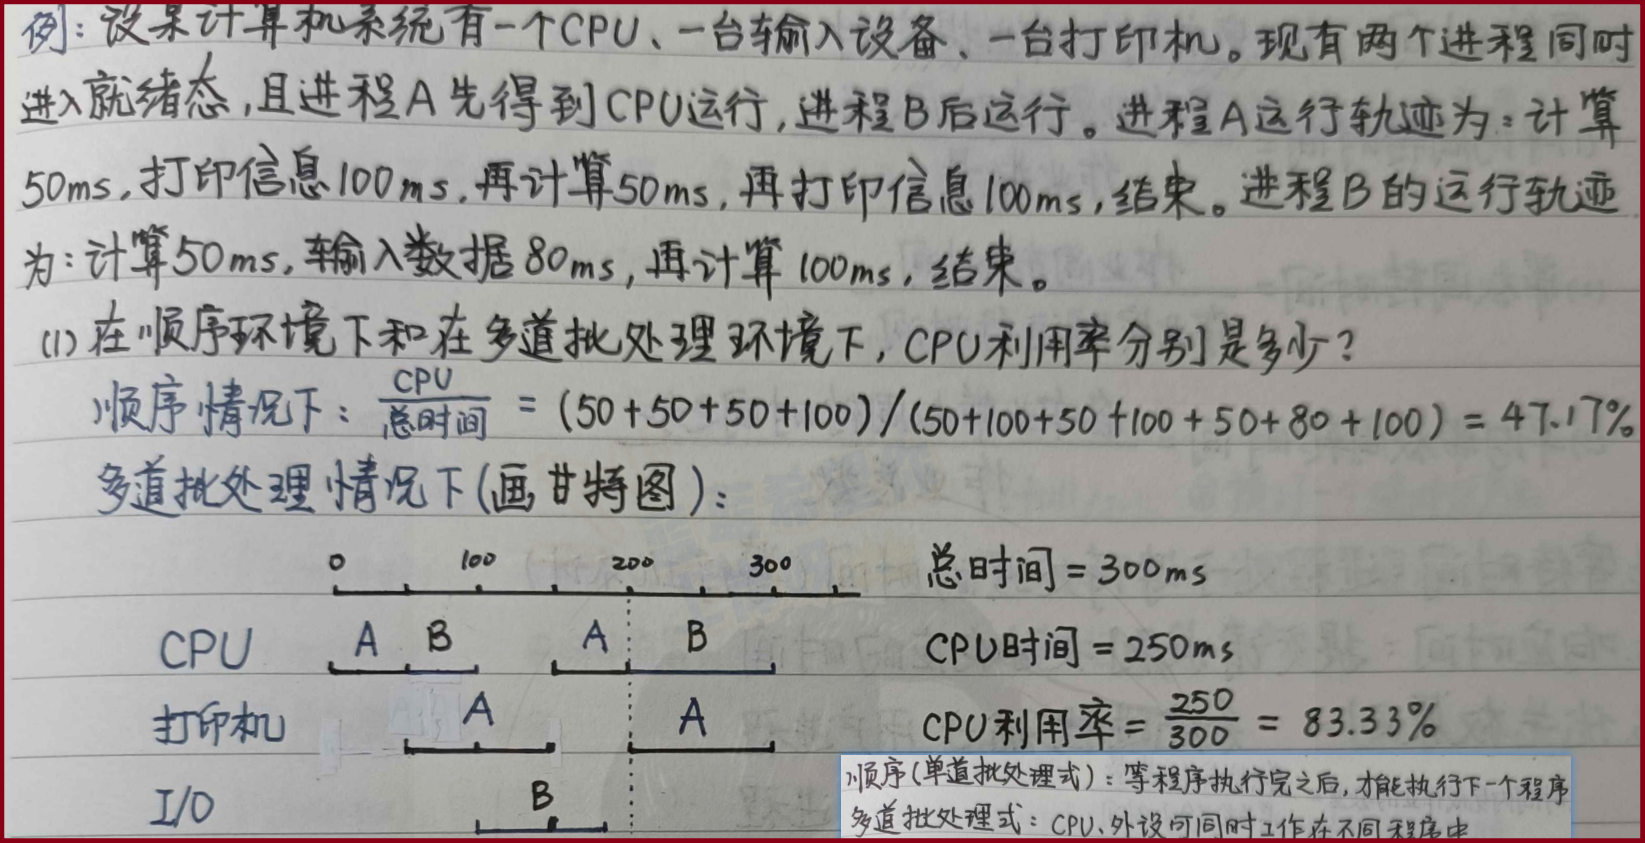 例：设某计算机系统有一个CPU、一台输入设备、一台打印机。现有两个进程同时
进入就绪态，且进程A先得到CPU运行，进程B后运行。进程A运行轨迹为：计算
50ms，打印信息100ms，再计算50ms，再打印信息100ms，结束。进程B的运行轨迹
为：计算50ms，输入数据80ms，再计算100ms，结束。
(1) 在顺序环境下和在多道批处理环境下，CPU利用率分别是多少？
顺序情况下：CPU/总时间 = (50+50+50+100)/(50+100+50+100+50+80+100) = 47.17%
多道批处理情况下(画甘特图)：
0 100 200 300 总时间=300ms
CPU A B A B CPU时间=250ms
打印机 A A CPU利用率=250/300=83.33%
I/O B
顺序(单道批处理式)：等程序执行完之后，才能执行下一个程序
多道批处理式：CPU、外设可同时工作在不同程序中